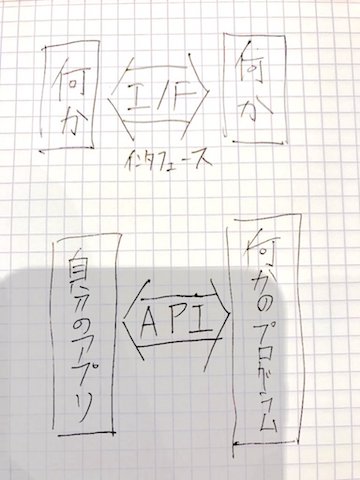 何か
I/F
何か
インタフェース
自分のアプリ
API
何かのプログラム